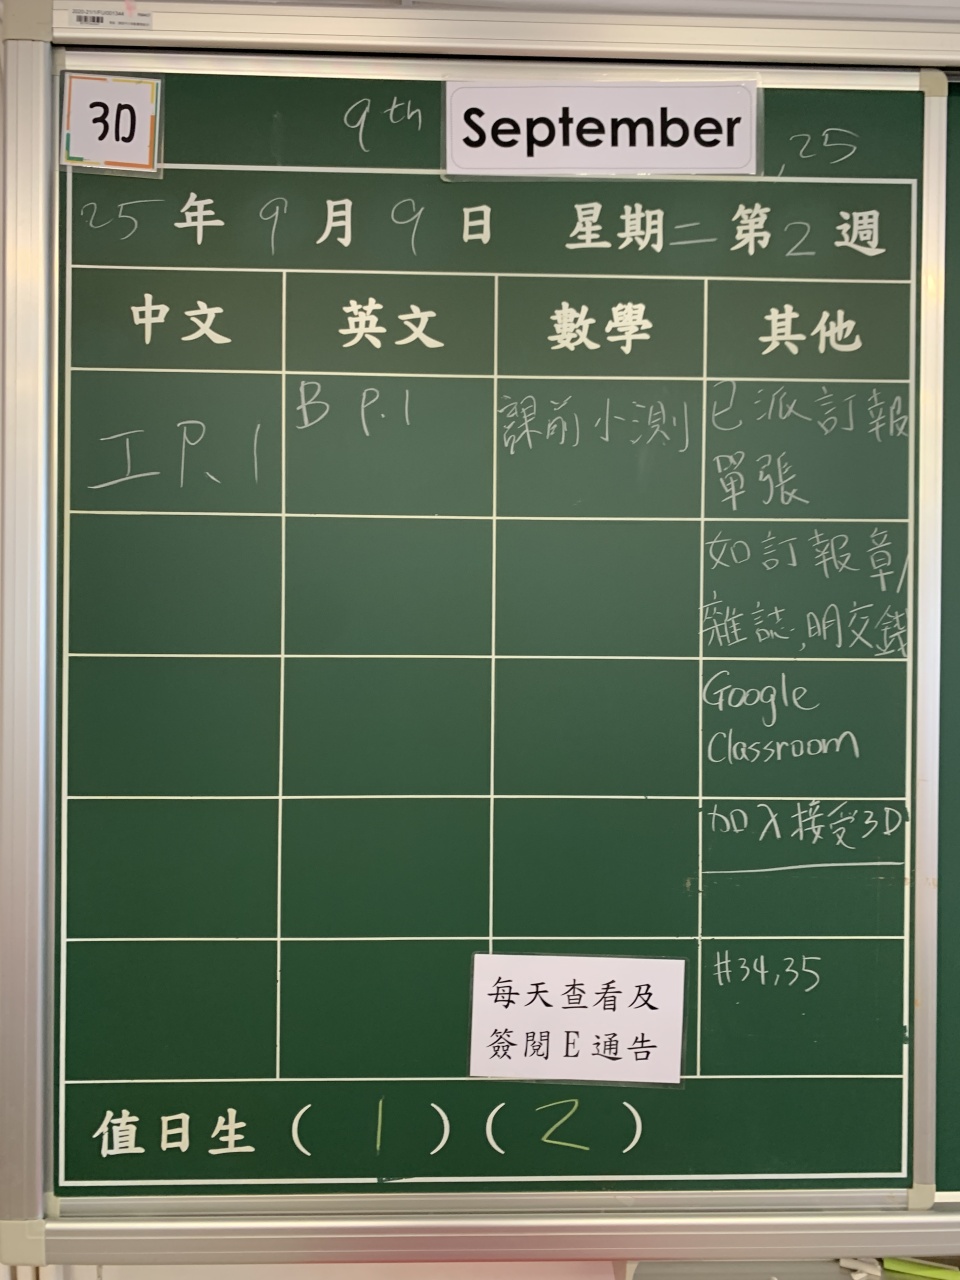 3D
9th September , 25
25年9月9日 星期二 第2週
中文 英文 數學 其他
工 P.1
B P.1
課前小測
已派訂報
單張
如訂報章/
雜誌,明交錢
Google
Classroom
加入接受3D
#34,35
每天查看及
簽閱E通告
值日生 ( 1 ) ( 2 )